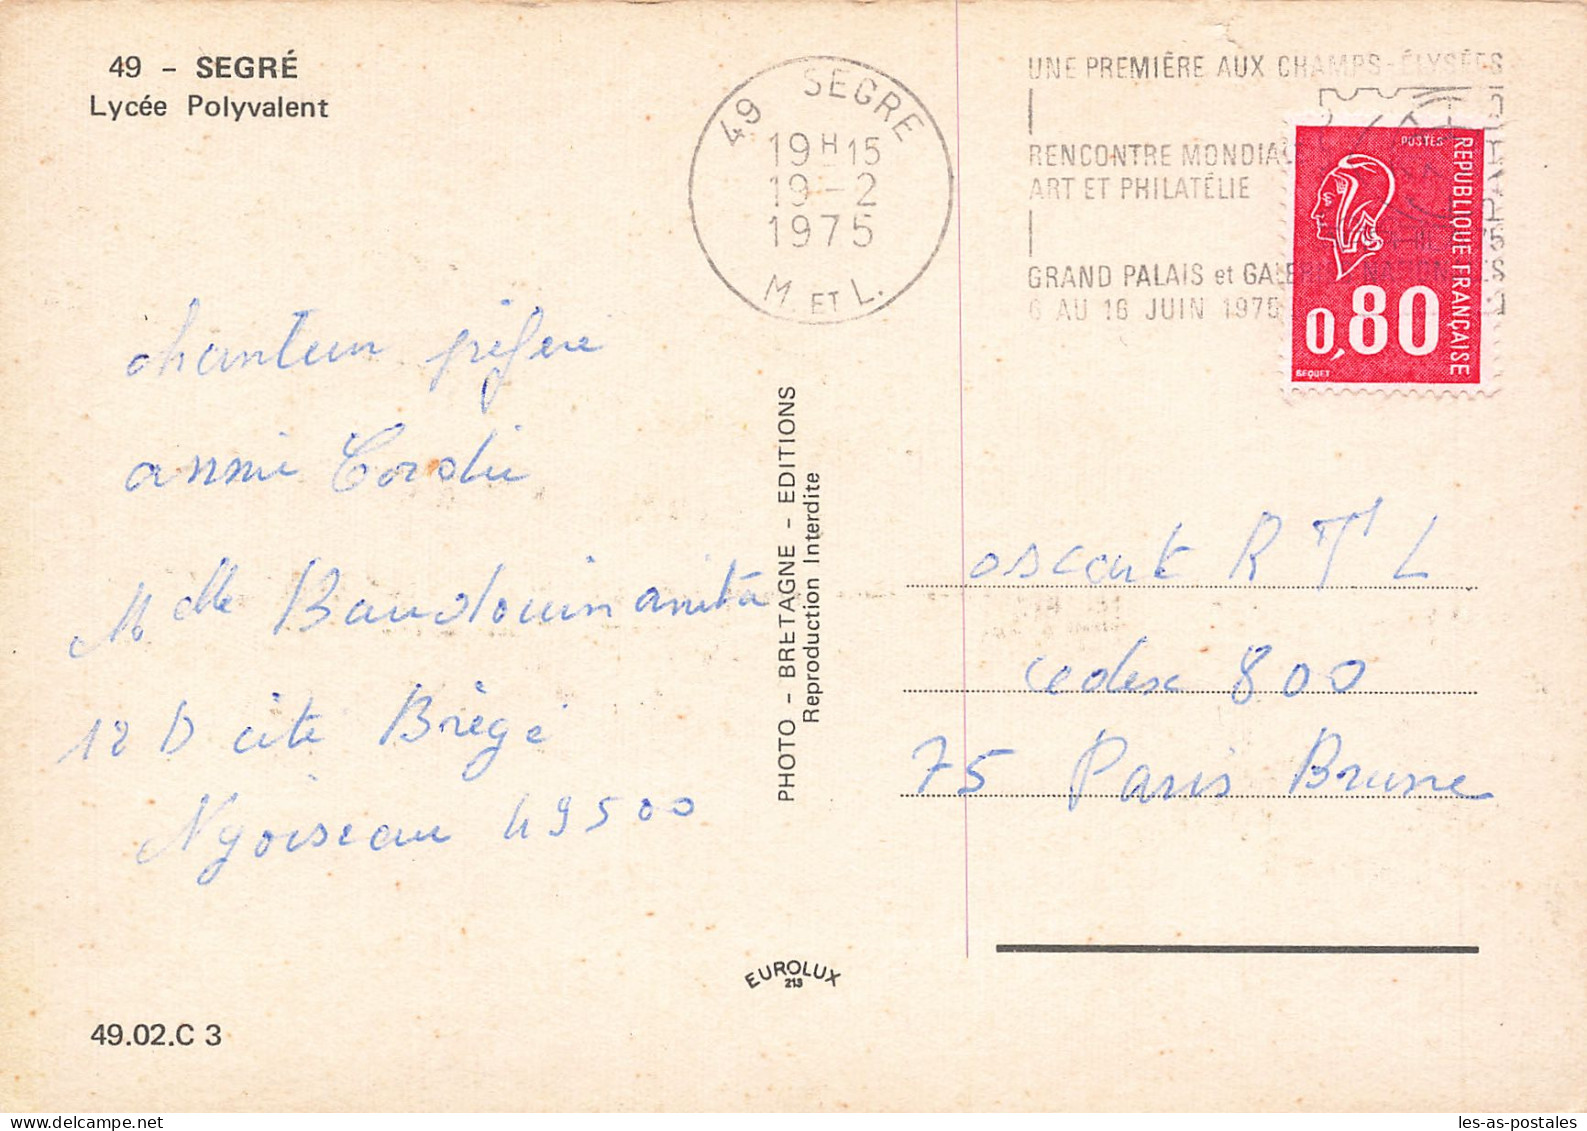 49 - SEGRÉ
Lycée Polyvalent
49 SEGRE
19H15
19-2
1975
M. ET L.
UNE PREMIÈRE AUX CHAMPS-ÉLYSÉES
RENCONTRE MONDIALE
ART ET PHILATÉLIE
GRAND PALAIS et GALERIES NATIONALES
6 AU 16 JUIN 1975
POSTES
REPUBLIQUE FRANÇAISE
0,80
BEQUET
chanteur préféré
annie Cordie
Melle Baudouin anita
12 D cité Brégé
Nyoiseau 49500
PHOTO - BRETAGNE - EDITIONS
Reproduction Interdite
oscart R T L
cedex 800
75 Paris Brune
EUROLUX
213
49.02.C 3
les-as-postales